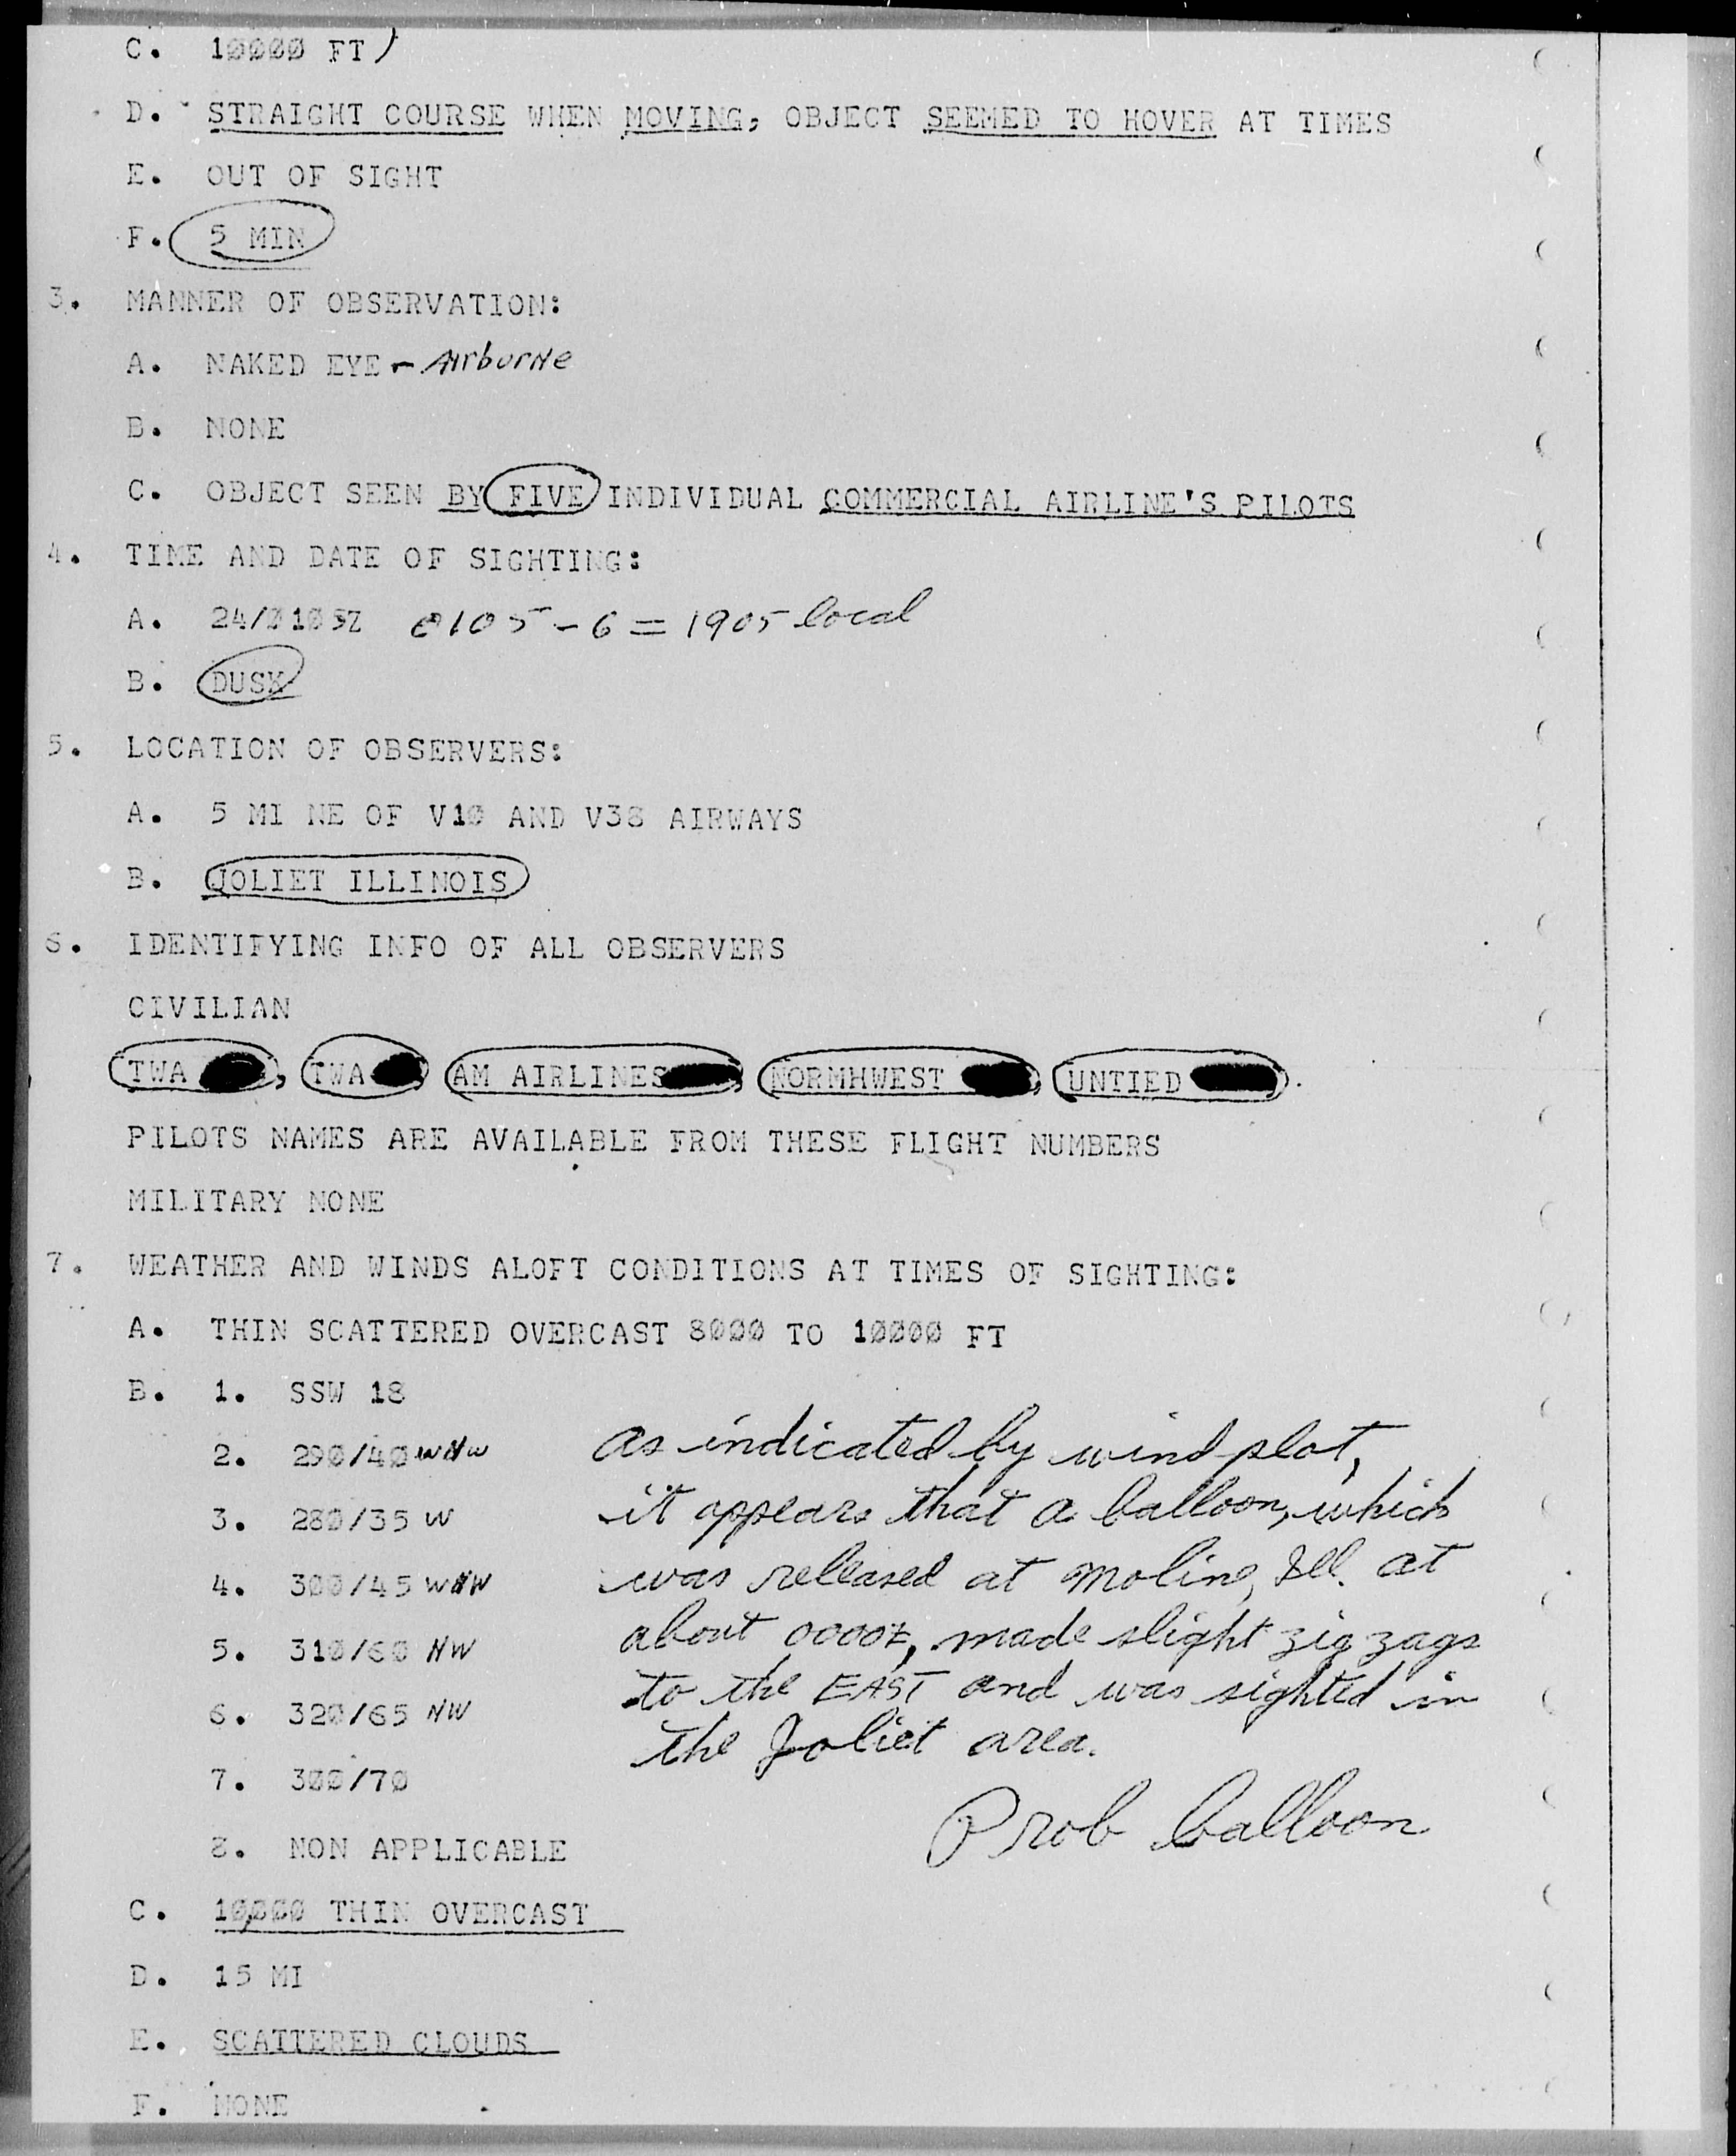 C. 10000 FT)
D. STRAIGHT COURSE WHEN MOVING, OBJECT SEEMED TO HOVER AT TIMES
E. OUT OF SIGHT
F. 5 MIN
3. MANNER OF OBSERVATION:
A. NAKED EYE - Airborne
B. NONE
C. OBJECT SEEN BY FIVE INDIVIDUAL COMMERCIAL AIRLINE'S PILOTS
4. TIME AND DATE OF SIGHTING:
A. 24/0105Z 0105 - 6 = 1905 local
B. DUSK
5. LOCATION OF OBSERVERS:
A. 5 MI NE OF V10 AND V38 AIRWAYS
B. JOLIET ILLINOIS
6. IDENTIFYING INFO OF ALL OBSERVERS
CIVILIAN
TWA , TWA AM AIRLINES , NORMHWEST , UNTIED .
PILOTS NAMES ARE AVAILABLE FROM THESE FLIGHT NUMBERS
MILITARY NONE
7. WEATHER AND WINDS ALOFT CONDITIONS AT TIMES OF SIGHTING:
A. THIN SCATTERED OVERCAST 8000 TO 10000 FT
B. 1. SSW 18
2. 290/40 WNW
3. 280/35 W
4. 300/45 WNW
5. 310/60 NW
6. 320/65 NW
7. 300/70
8. NON APPLICABLE
as indicated by wind plot,
it appears that a balloon, which
was released at Moline, Ill. at
about 0000Z, made slight zig zags
to the EAST and was sighted in
the Joliet area.
Prob balloon
C. 10,000 THIN OVERCAST
D. 15 MI
E. SCATTERED CLOUDS
F. NONE